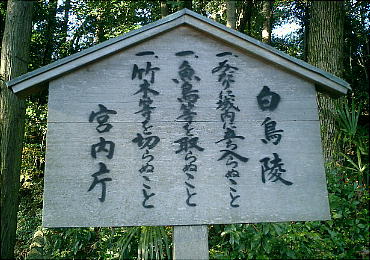 白鳥陵
一、みだりに域内に立入らぬこと
一、魚鳥等を取らぬこと
一、竹木等を切らぬこと
宮内庁